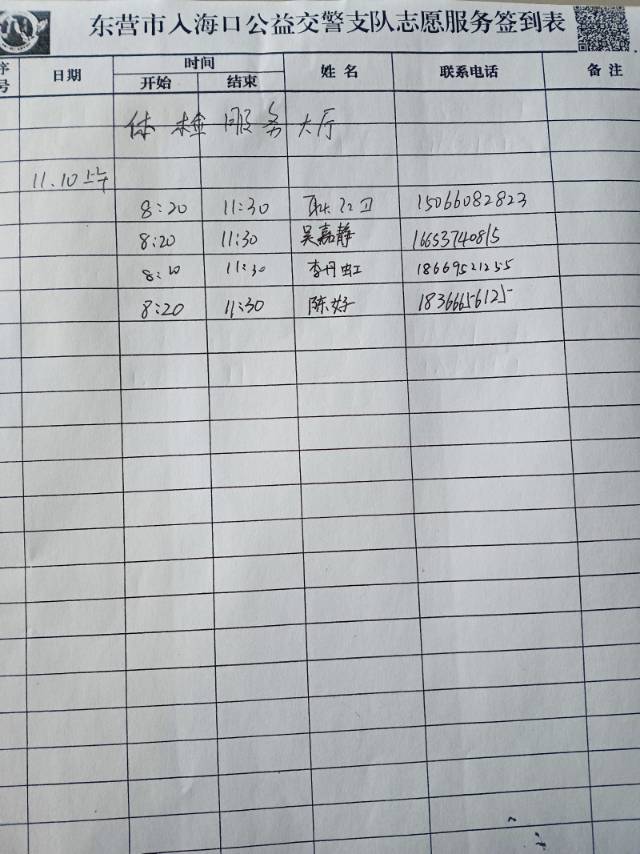 东营市入海口公益交警支队志愿服务签到表
序号 日期 时间 姓名 联系电话 备注
开始 结束
体检服务大厅
11.10上午
8:20 11:30 15066082823
8:20 11:30 吴嘉静 16653740815
8:20 11:30 李丹虹 18669521255
8:20 11:30 陈好 18366656125